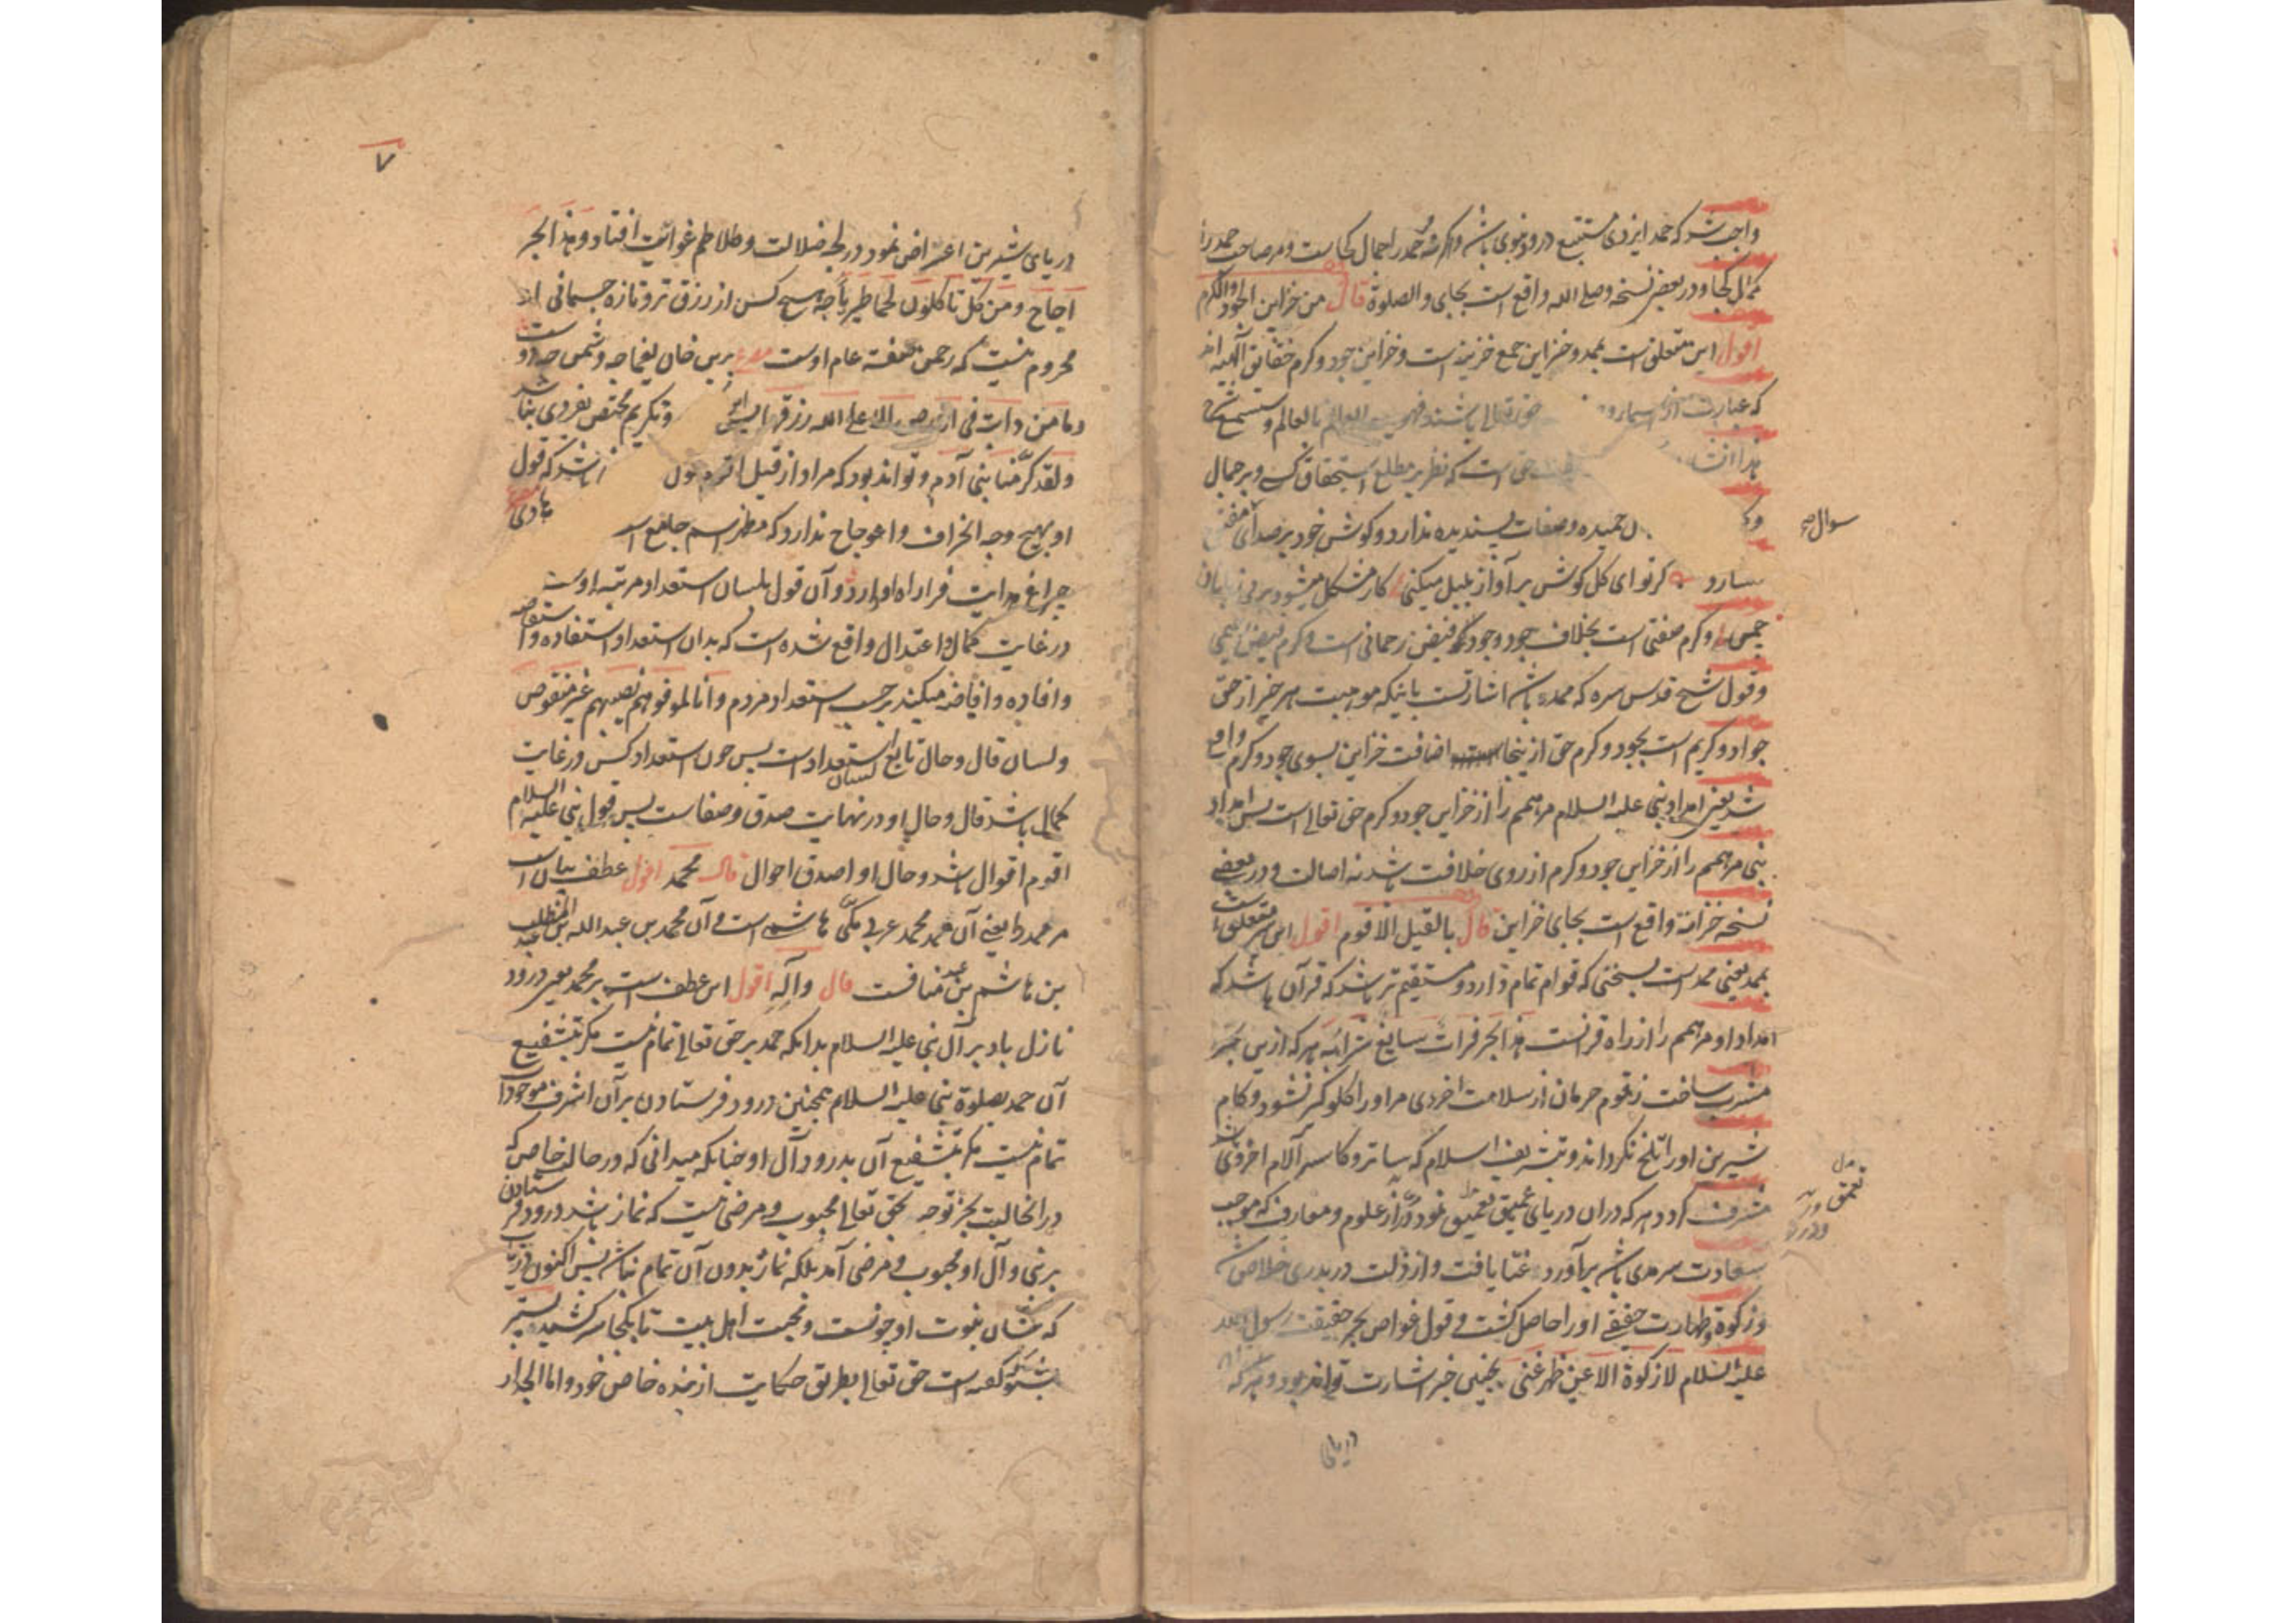 واجب شد که حمد ایزدی مستتبع درود نبوی باشد واکر نه حمد را جمال کجاست ومر صاحب حمد را
کمال کجا ودر بعضی نسخه وصلی الله واقع است بجای والصلوة قال من خزاین الجود والکرم
اقول این متعلق است بممد وخزاین جمع خزینه است وخزاین جود وکرم حقایق الهیه اند
که عبارت از اسما و حق تعالی باشند فهو العالم بالعالم و
هذا حق است که نظر بر مطلع استحقاق کسی وبر جمال
حمیده وصفات پسندیده ندارد وکوش خود بر صدای
سوال
کر تو ای کل کوش بر آواز بلبل میکنی کار مشکل میشود بر بی زبانان
چمن وکرم صفتی است بخلاف جود وجود فیض رحمانی است وکرم فیض رحیمی
وقول شیخ قدس سره که ممد باشد اشارتست باینکه موهبت هر خیر از حق
جواد وکریم است بجود وکرم حق ازینجا اضافت خزاین بسوی جود وکرم واقع
شد یعنی امداد نبی علیه السلام مر همم را از خزاین جود وکرم حق تعالی است پس امداد
نبی مر همم را از خزاین جود وکرم از روی خلافت باشد نه اصالت ودر بعضی
نسخه خزانة واقع است بجای خزاین قال بالقیل الاقوم اقول این متعلق است
بممد یعنی ممد است بسخنی که قوام تمام دارد ومستقیم تر باشد که قرآن باشد که
امداد او مر همم را از راه قرانست هذا بحر فرات سایغ شرابه هر که ازین بحر
مشرب ساخت زقوم حرمان از سلامت اخروی مر او را کلوکیر نشود وکام
شیرین او را تلخ نکرداند وبتشریف اسلام که ساتر وکاسر آلام اخروی
مشرف کردد وهر که دران دریای عمیق تعمیق نمود ودر از علوم ومعارف که موجب
تعمق
سعادت سرمدی باشد برآورد غنا یافت واز ذلت دربدری خلاص شد
وزکوة وطهارت حقیقی او را حاصل کشت وقول غواص بحر حقیقت رسول الله
علیه السلام لا زکوة الا عن ظهر غنی بچنین خبر اشارت تواند بود وهر که
دریای
۷
دریای شیرین اعراض نمود در لجه ضلالت وتلاطم غوائیت افتاد وهذا بحر
اجاج ومن کل تاکلون لحما طریا چه هیچ کس از رزق تر وتازه جسمانی او
محروم نیست که رحمن صفت عام اوست مصرع برین خوان یغما چه دشمن چه دوست
وما من دابة فی الارض الا علی الله رزقها وتکریم مختص بفردی نباشد
ولقد کرمنا بنی آدم وتواند بود که مراد از قیل اقوم قول باشد که قول
او بهیچ وجه انحراف واعوجاج ندارد که مظهر اسم جامع است هادی
چراغ هدایت فرا راه او دارد وآن قول بلسان استعداد مرتبه اوست
در غایت کمال واعتدال واقع شده است که بدان استعداد استفاده واستفاضه
وافاده وافاضه میکند بر حسب استعداد مردم وانا لموفوهم نصیبهم غیر منقوص
ولسان قال وحال تابع لسان استعداد است پس چون استعداد کسی در غایت
کمال باشد قال وحال او در نهایت صدق وصفاست پس قول نبی علیه السلام
اقوم اقوال باشد وحال او اصدق احوال قال محمد اقول عطف بیان است
مر ممد را یعنی آن ممد محمد عربی مکی هاشمی است وآن محمد بن عبد الله بن عبد المطلب
بن هاشم بن عبد منافست قال وآله اقول این عطف است بر محمد یعنی درود
نازل باد بر آل نبی علیه السلام بدانکه حمد بر حق تعالی تمام نیست مکر بتشفیع
آن حمد بصلوة نبی علیه السلام همچنین درود فرستادن بر آن اشرف موجودات
تمام نیست مکر بتشفیع آن بدرود آل او چنانکه میدانی که در حال خاص که
در آن حالیت بجز توجه بحق تعالی محبوب ومرضی نیست که نماز باشد درود فرستادن
بر نبی وآل او محبوب ومرضی آمد بلکه نماز بدون آن تمام نباشد پس اکنون دریاب
که شان نبوت او چونست ومحبت اهل بیت تا بکجا سر کشیده
بشنو که کفته است حق تعالی بطریق حکایت از بنده خاص خود واما الجدار